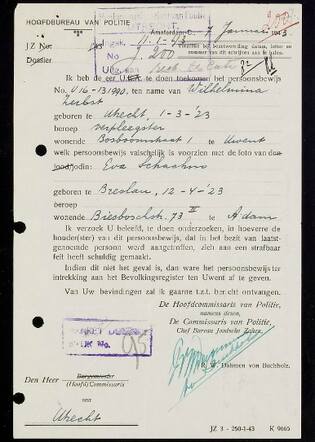 HOOFDBUREAU VAN POLITIE
Amsterdam, 7 Januari 1943
JZ No:
Dossier
Ingek. 11-1-43
No. J. 200
Uitg. aan
Ik heb de eer U.E. te doen toekomen het persoonsbewijs
No. U16-131990, ten name van Wilhelmina
Herbst
geboren te Utrecht, 1-3-'23
beroep verpleegster
wonende Bosboomstraat 1 te Uwent
welk persoonsbewijs valschelijk is voorzien met de foto van den
Jood/jodin: Eva Schaahno
geboren te Breslau, 12-4-'23
beroep
wonende Biesboschstr. 73 II te A'dam
Ik verzoek U beleefd, te doen onderzoeken, in hoeverre de
houder(ster) van dit persoonsbewijs, dat in het bezit van laatst-
genoemde persoon werd aangetroffen, zich aan een strafbaar
feit heeft schuldig gemaakt.
Indien dit niet het geval is, dan ware het persoonsbewijs ter
intrekking aan het Bevolkingsregister ten Uwent af te geven.
Van Uw bevindingen zal ik gaarne t.z.t. bericht ontvangen.
De Hoofdcommissaris van Politie,
namens dezen,
De Commissaris van Politie,
Chef Bureau Joodsche Zaken
R. W. Dahmen von Buchholz.
Den Heer Burgemeester
(Hoofd)Commissaris
van
Utrecht
JZ 3 - 250-1-43 K 9665